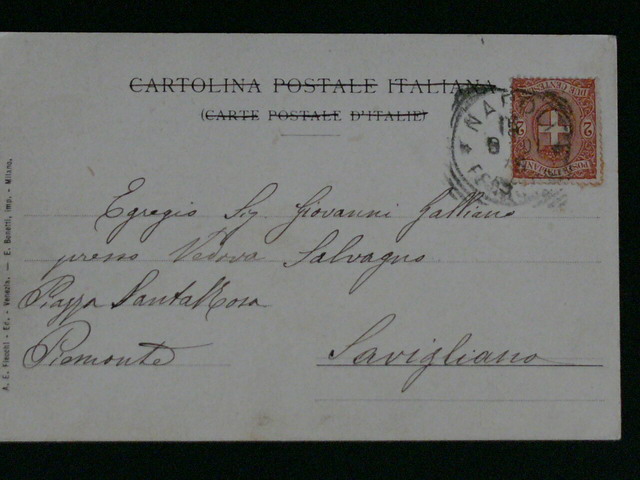 CARTOLINA POSTALE ITALIANA
(CARTE POSTALE D'ITALIE)
NAPOLI
8
FEB
2
2
Egregio Sig. Giovanni Galliano
presso Vedova Salvagno
Piazza Santa Rosa
Piemonte
Savigliano
A. E. Fiecchi - Ed. - Venezia. — E. Bonetti, Imp. - Milano.